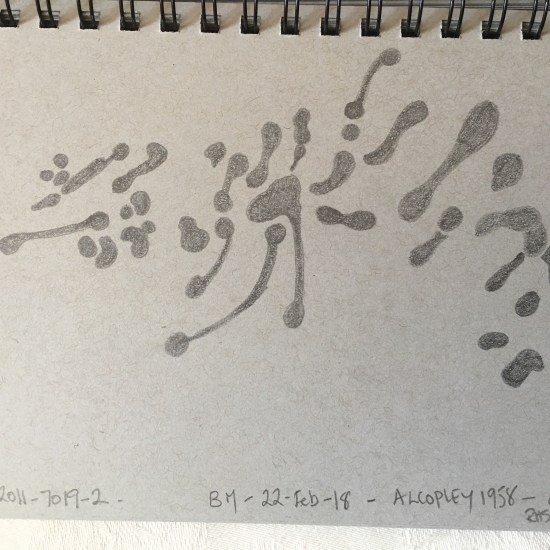 2011-7019-2 - BM - 22-Feb-18 - ALCOPLEY 1958 -